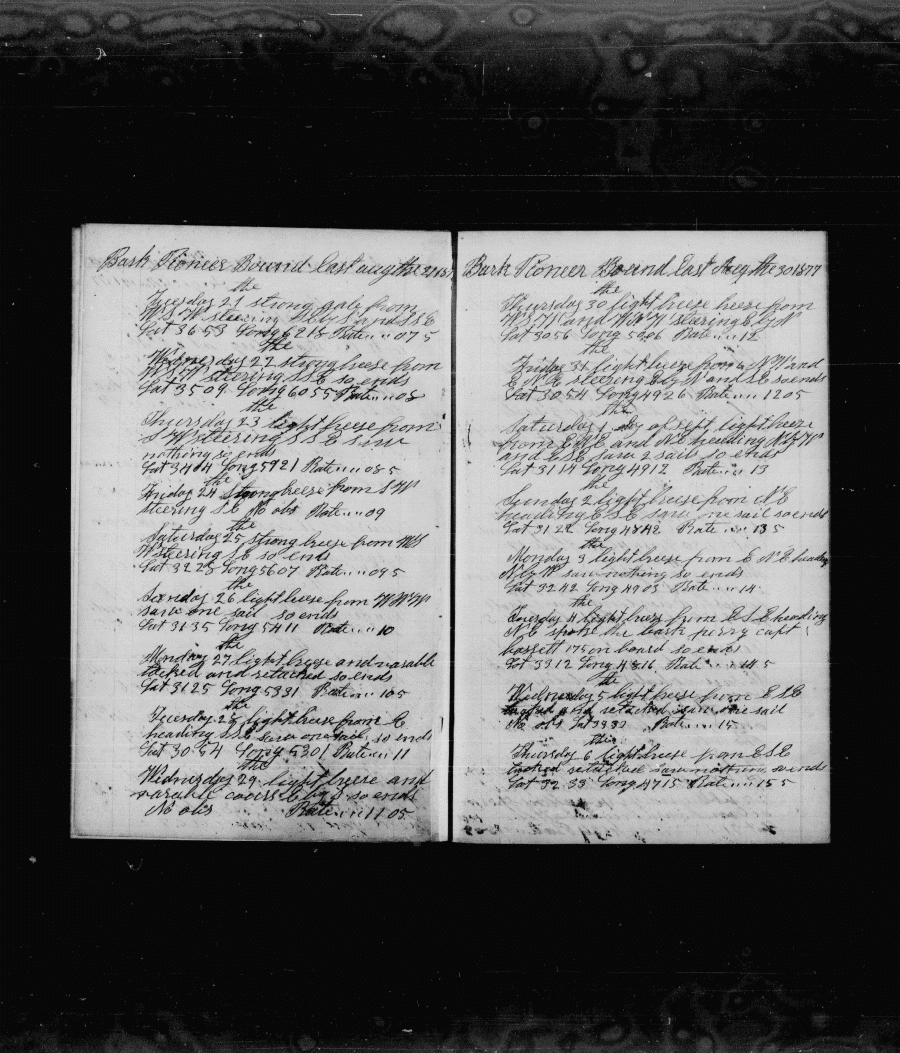 Bark Pioneer Bound East Aug the 21 187
the
Tuesday 21 strong gale from
W S W steering and S S E
Lat 36 53 Long 62 18 Rate .... 07 5
the
Wednesday 22 strong breese from
W S W steering S S E so ends
Lat 35 09 Long 60 55 Rate .... 08
the
Thursday 23 light breese from
S W steering S S E saw
nothing so ends
Lat 34 04 Long 59 21 Rate .... 08 5
the
Friday 24 Strong breese from S W
steering S E No obs Rate .... 09
the
Saturday 25 strong breese from WS
W steering S E so ends
Lat 32 25 Long 56 07 Rate .... 09 5
the
Sunday 26 light breese from W N W
saw one sail so ends
Lat 31 35 Long 54 11 Rate .... 10
the
Monday 27 light breese and varable
tacked and retacked so ends
Lat 31 25 Long 53 31 Rate .... 10 5
the
Tuesday 28 light breese from E
heading SSE saw one sail so ends
Lat 30 54 Long 53 01 Rate .... 11
the
Wednesday 29 light breese and
varable course E by S so ends
No obs Rate .... 11 05
Bark Pioneer Bound East Aug the 30 1877
the
Thursday 30 light breese from
W S W and W N W steering E by N
Lat 30 56 Long 50 06 Rate .... 12
the
Friday 31 light breese from N W and
E N E steering and S E so ends
Lat 30 54 Long 49 26 Rate .... 12 05
the
Saturday 1 day of sept light breeze
from E N E and N E heading N by W
and E S E saw 2 sails so ends
Lat 31 14 Long 49 12 Rate .... 13
the
Sunday 2 light breese from N E
heading E S E saw one sail so ends
Lat 31 22 Long 48 42 Rate .... 13 5
the
Monday 3 light breese from E N E heading
N by W saw nothing so ends
Lat 32 42 Long 49 03 Rate .... 14
the
Tuesday 4 light breese from E S E heading
N E spoke the bark perry capt
bassett 175 on board so ends
Lat 33 12 Long 48 16 Rate .... 14 5
the
Wednesday 5 light breese from E S E
tacked and retacked saw one sail
No obs Lat 33 32 Rate .... 15
the
Thursday 6 light breese from E S E
tacked retacked saw nothing so ends
Lat 32 33 Long 47 15 Rate .... 15 5